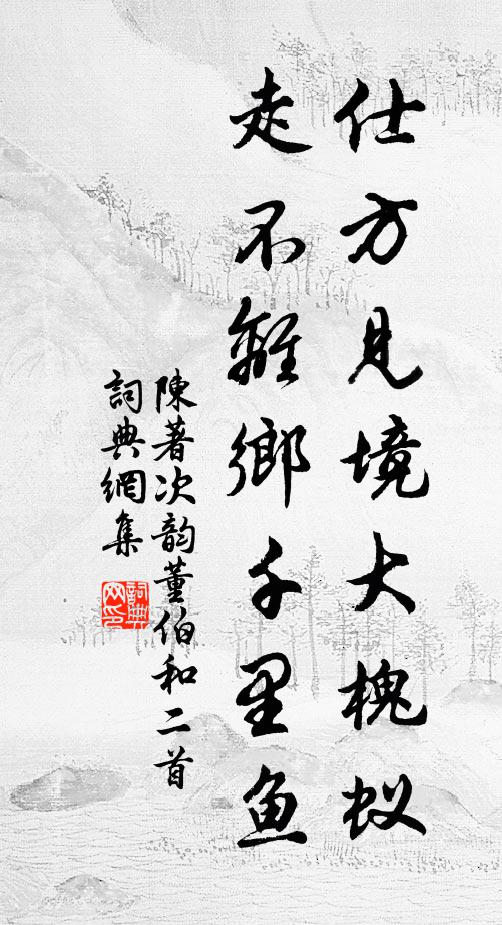 仕方見境大槐蚁
走不離鄉千里鱼
陳著次韵董伯和二首
詞典網集
詞典网印